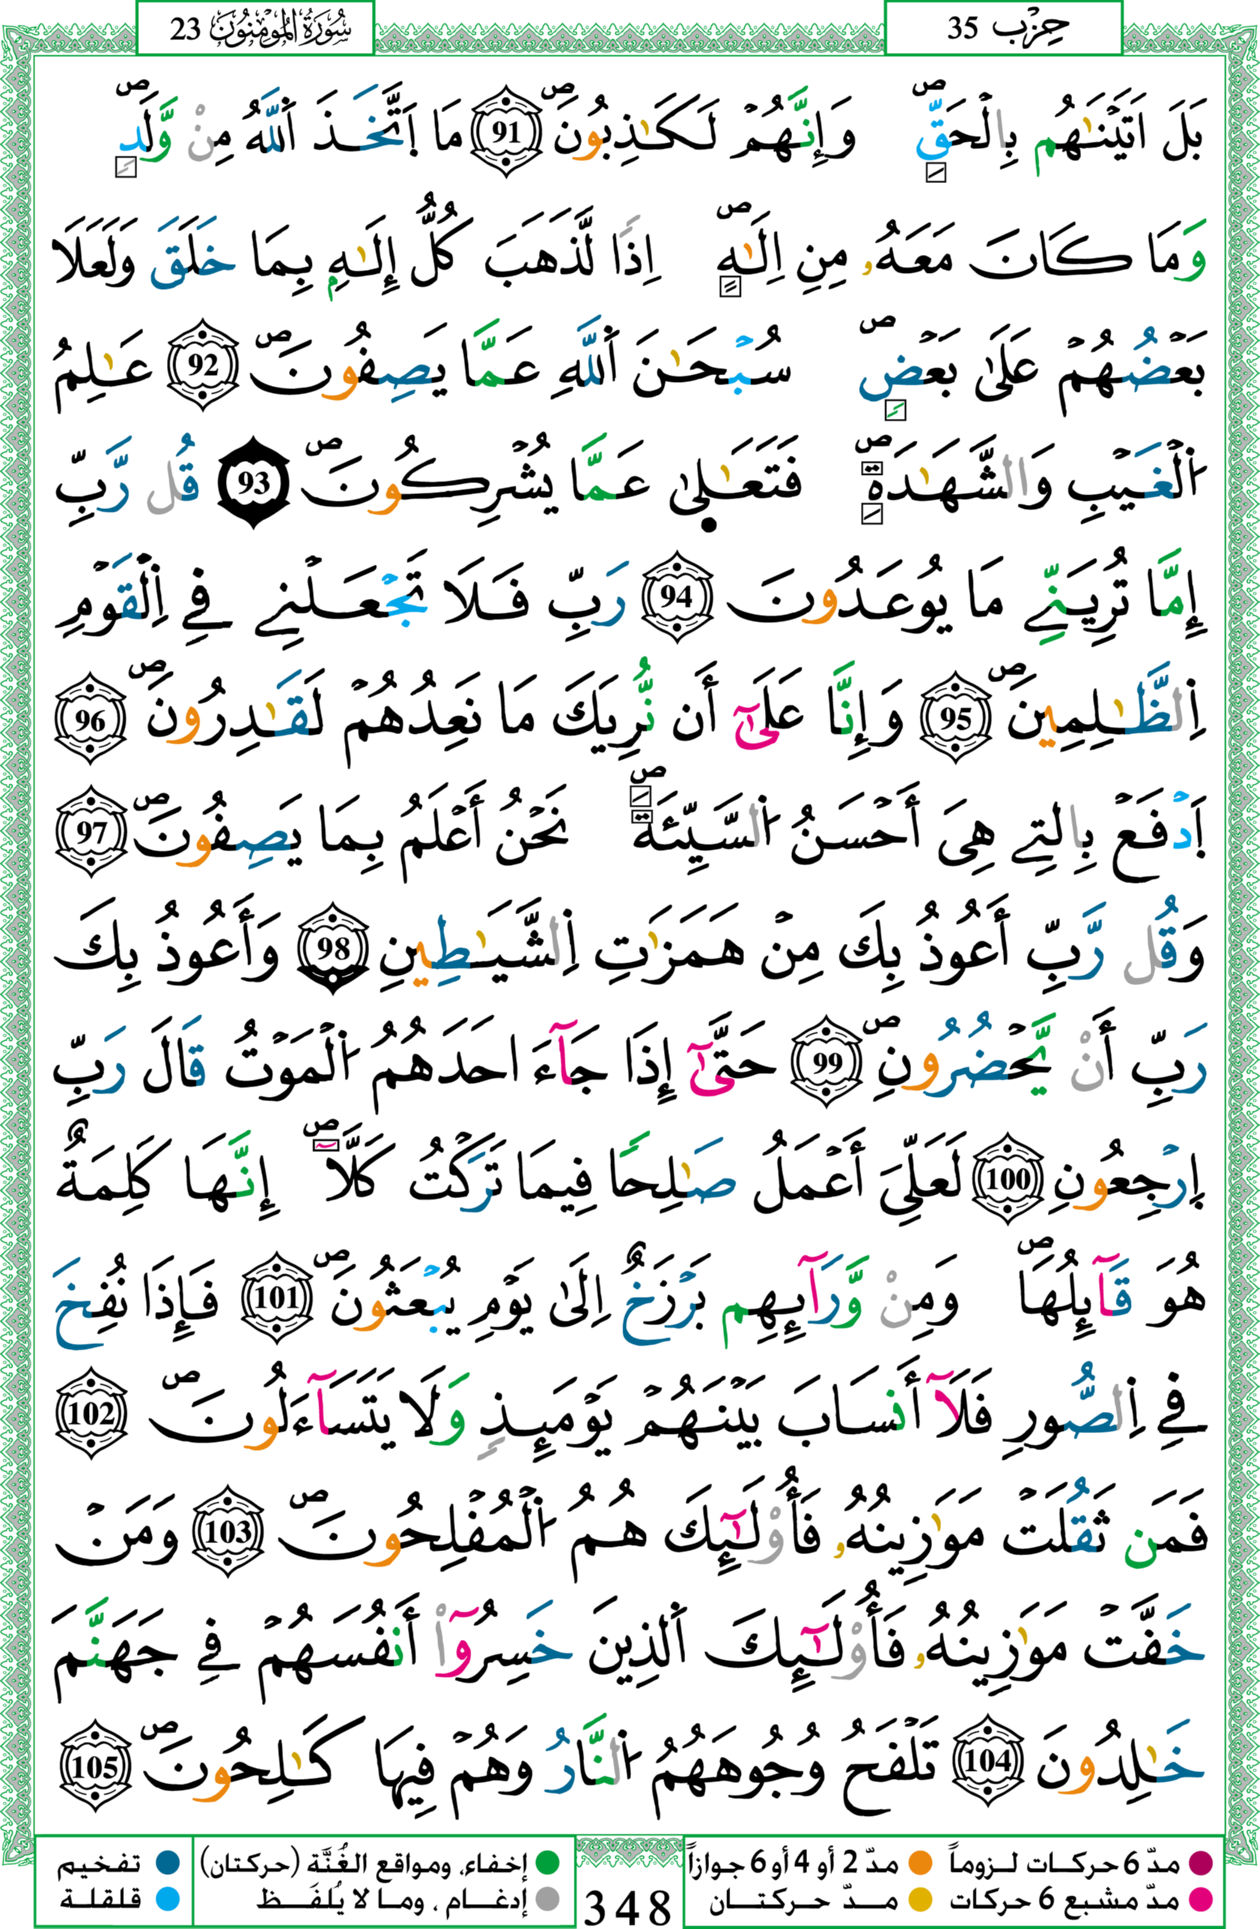 سُورَةُ المُومِنُونَ 23
حِزْب 35
بَلَ اَتَيْنَٰهُم بِالْحَقِّۖ وَإِنَّهُمْ لَكَٰذِبُونَۖ 91 مَا اَتَّخَذَ اَللَّهُ مِنْ وَّلَدٖۖ
وَمَا كَانَ مَعَهُۥ مِنِ اِلَٰهٍۖ اِذًا لَّذَهَبَ كُلُّ إِلَٰهِۢ بِمَا خَلَقَ وَلَعَلَا
بَعْضُهُمْ عَلَىٰ بَعْضٖۖ سُبْحَٰنَ اَللَّهِ عَمَّا يَصِفُونَۖ 92 عَٰلِمُ
اُلْغَيْبِ وَالشَّهَٰدَةِۖ فَتَعَٰلىٰ عَمَّا يُشْرِكُونَۖ 93 قُل رَّبِّ
إِمَّا تُرِيَنِّے مَا يُوعَدُونَ 94 رَبِّ فَلَا تَجْعَلْنِے فِے اِلْقَوْمِ
اِلظَّٰلِمِينَۖ 95 وَإِنَّا عَلَىٰٓ أَن نُّرِيَكَ مَا نَعِدُهُمْ لَقَٰدِرُونَۖ 96
اَدْفَعْ بِالتِے هِىَ أَحْسَنُ اُلسَّيِّئَةَۖ نَحْنُ أَعْلَمُ بِمَا يَصِفُونَۖ 97
وَقُل رَّبِّ أَعُوذُ بِكَ مِنْ هَمَزَٰتِ اِلشَّيَٰطِينِ 98 وَأَعُوذُ بِكَ
رَبِّ أَنْ يَّحْضُرُونِۖ 99 حَتَّىٰٓ إِذَا جَآءَ احَدَهُمُ اُلْمَوْتُ قَالَ رَبِّ
اِرْجِعُونِ 100 لَعَلِّىَ أَعْمَلُ صَٰلِحًا فِيمَا تَرَكْتُ كَلَّآۖ إِنَّهَا كَلِمَةٌ
هُوَ قَآئِلُهَاۖ وَمِنْ وَّرَآئِهِم بَرْزَخٌ اِلَىٰ يَوْمِ يُبْعَثُونَۖ 101 فَإِذَا نُفِخَ
فِے اِلصُّورِ فَلَآ أَنسَابَ بَيْنَهُمْ يَوْمَئِذٖ وَلَا يَتَسَآءَلُونَۖ 102
فَمَن ثَقُلَتْ مَوَٰزِينُهُۥ فَأُوْلَٰٓئِكَ هُمُ اُلْمُفْلِحُونَۖ 103 وَمَنْ
خَفَّتْ مَوَٰزِينُهُۥ فَأُوْلَٰٓئِكَ اَلذِينَ خَسِرُوٓاْ أَنفُسَهُمْ فِے جَهَنَّمَ
خَٰلِدُونَ 104 تَلْفَحُ وُجُوهَهُمُ اُلنَّارُ وَهُمْ فِيهَا كَٰلِحُونَۖ 105
مدّ 6 حركات لزوماً مدّ 2 أو 4 أو 6 جوازاً إخفاء، ومواقع الغُنَّة (حركتان) تفخيم
مدّ مشبع 6 حركات مدّ حركتان إدغام ، وما لا يُلفَظ قلقلة
348